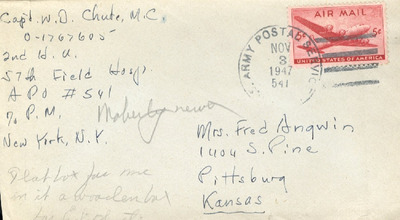 Capt. W. D. Chute, M.C.
O-1767605
2nd H.U.
57th Field Hosp.
APO #541
% P.M.
New York, N.Y.
AIR MAIL
5¢
UNITED STATES OF AMERICA
ARMY POSTAL SERVICE
NOV
3
1947
541
Mrs. Fred Angwin
1404 S. Pine
Pittsburg
Kansas
on it a wooden box